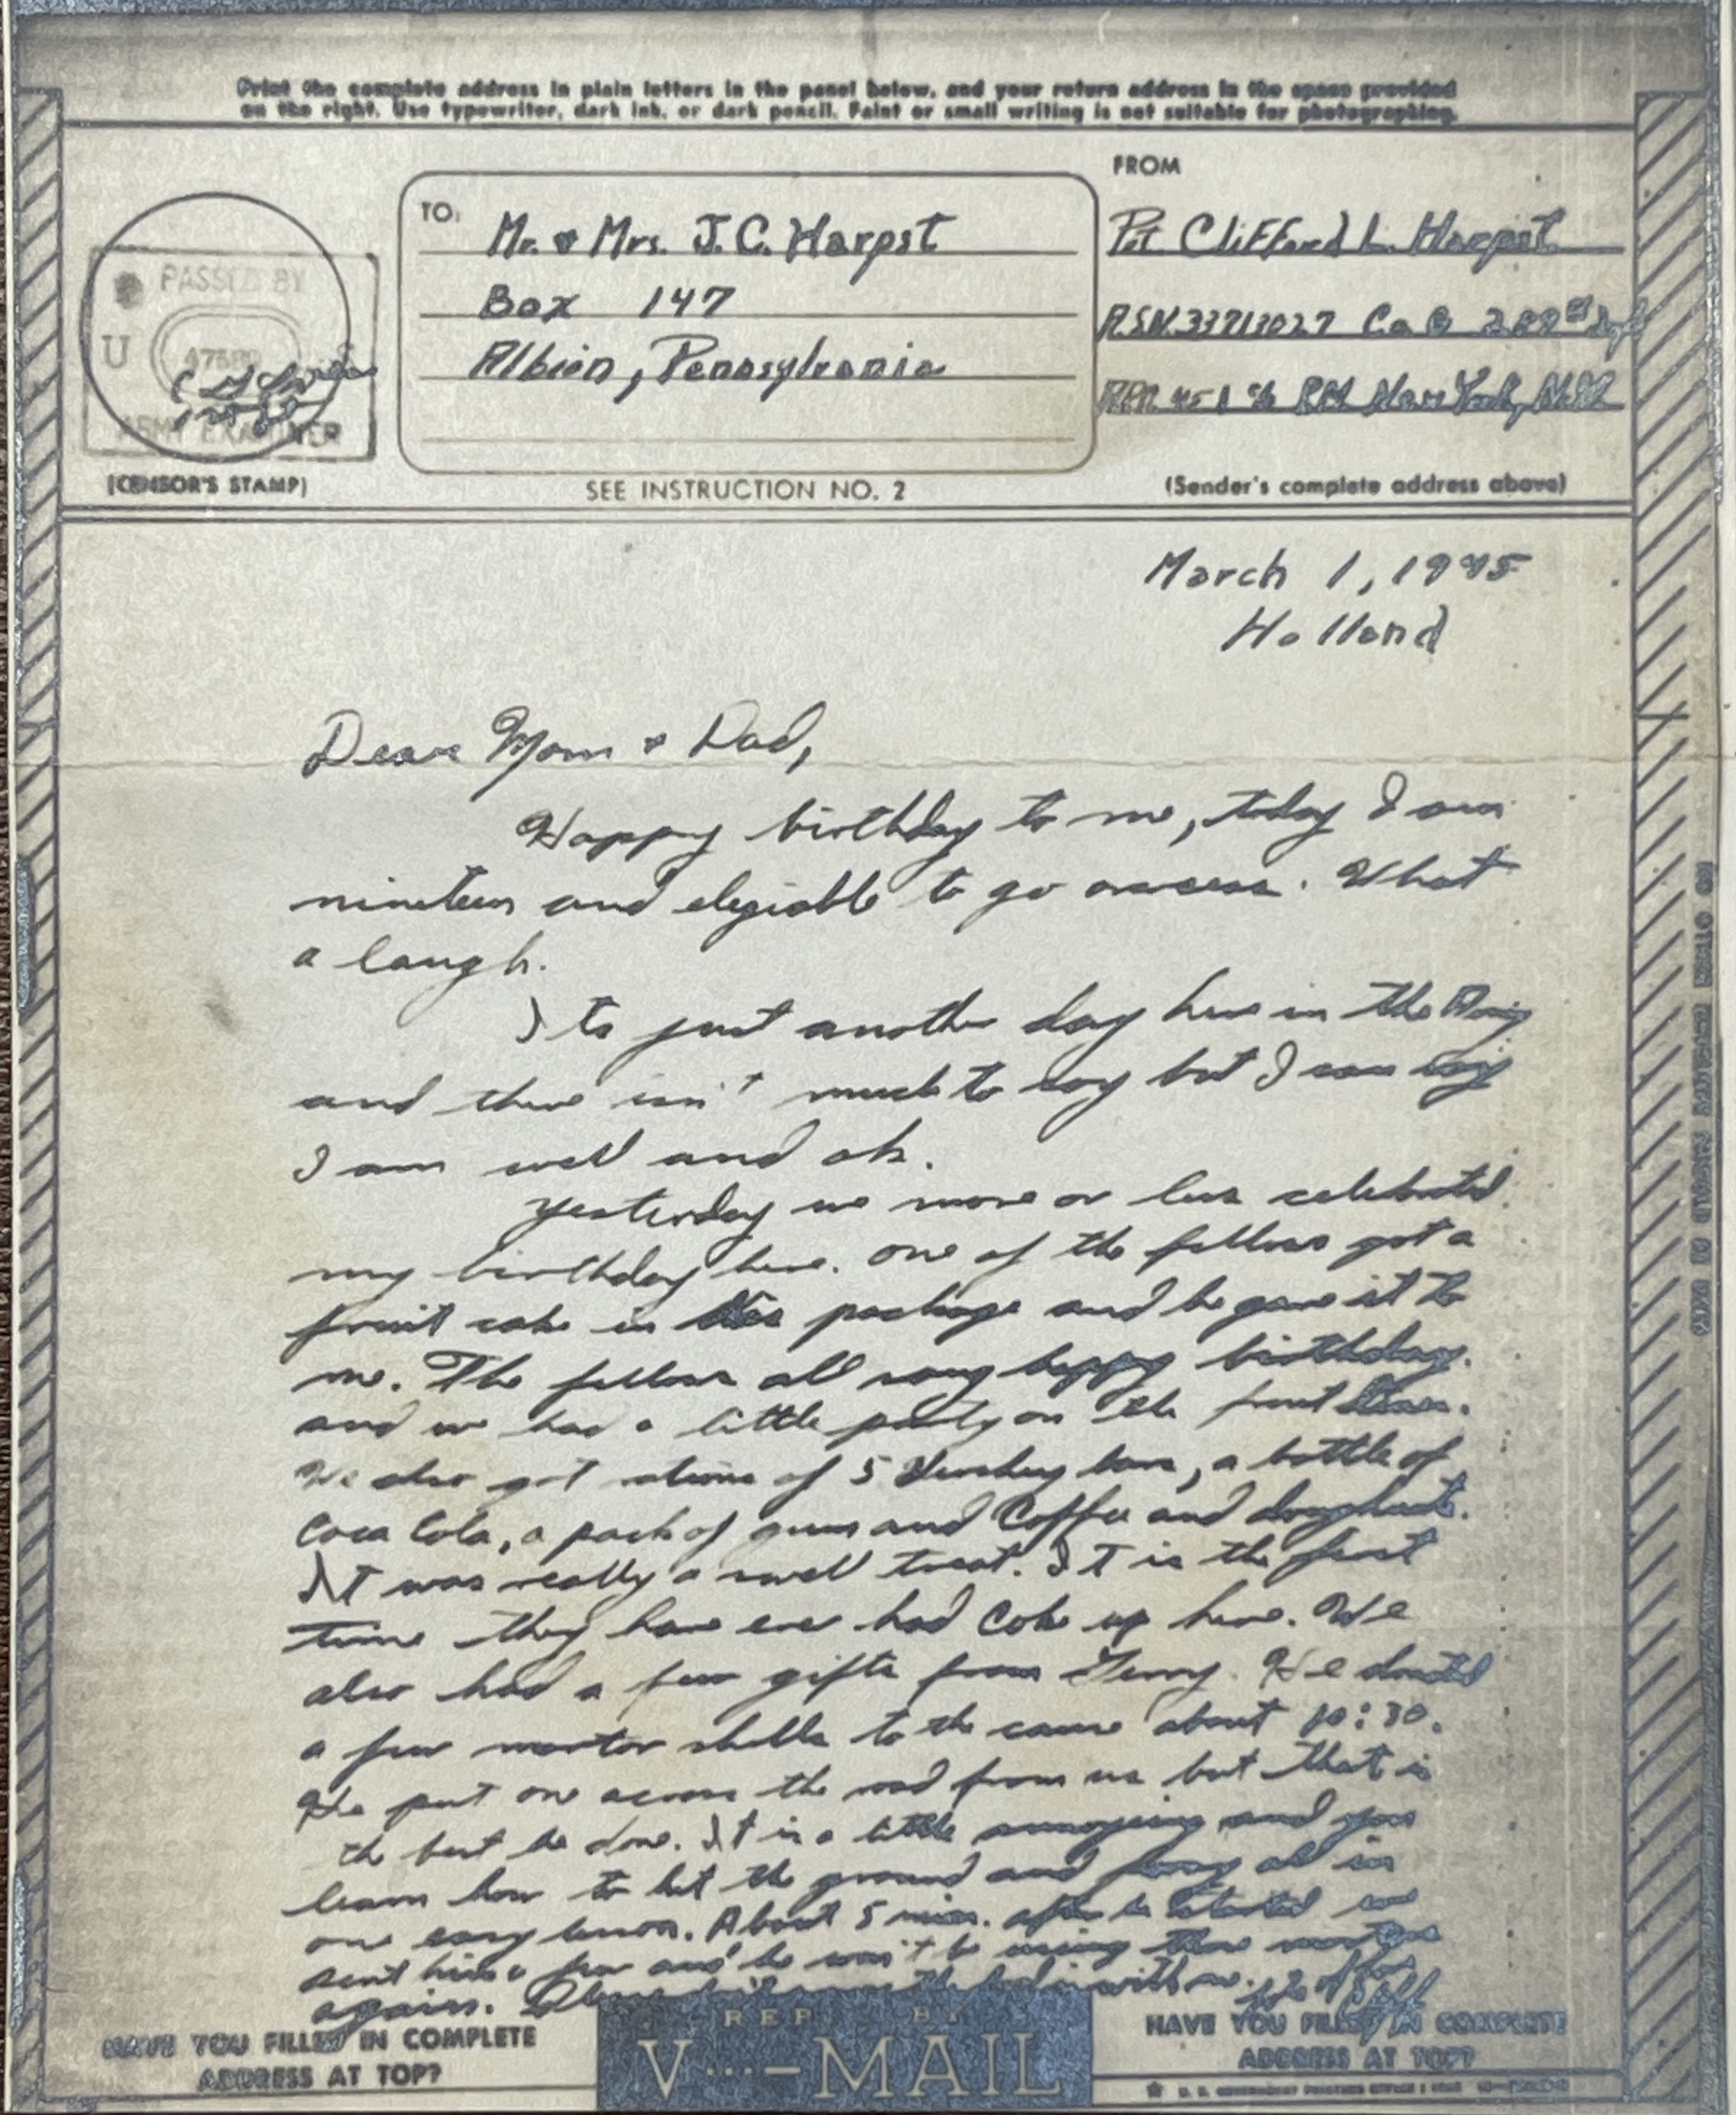 Print the complete address in plain letters in the panel below, and your return address in the space provided
on the right. Use typewriter, dark ink, or dark pencil. Faint or small writing is not suitable for photographing.
FROM
TO:
Mr. & Mrs. J. C. Harpst
Box 147
Albion, Pennsylvania
Pvt Clifford L. Harpst
ASN 33713027 Co G 289th
APO 451 % PM New York, N.Y.
PASSED BY
U S
ARMY EXAMINER
(CENSOR'S STAMP)
SEE INSTRUCTION NO. 2
(Sender's complete address above)
March 1, 1945
Holland
Dear Mom & Dad,
Happy birthday to me, today I am
nineteen and elegiable to go overseas. What
a laugh.
Its just another day here in the Army
and there isn't much to say but I can say
I am well and ok.
Yesterday we more or less celebrated
my birthday here. One of the fellows got a
fruit cake in his package and he gave it to
me. The fellows all sang happy birthday.
and we had a little party on the front lines.
We also got rations of 5 Hershey bars, a bottle of
Coca Cola, a pack of gum and Coffee and doughnuts.
It was really a swell treat. It is the first
time they have ever had Coke up here. We
also had a few gifts from Jerry. He donated
a few mortar shells to the cause about 10:30.
He put one across the road from us but that is
the best he done. It is a little annoying and you
learn how to hit the ground and pray all in
one easy lesson. About 5 min. after he started we
sent him a few and he won't be using those mortars
again.
HAVE YOU FILLED IN COMPLETE
ADDRESS AT TOP?
REPLY BY
V···—MAIL
HAVE YOU FILLED IN COMPLETE
ADDRESS AT TOP?